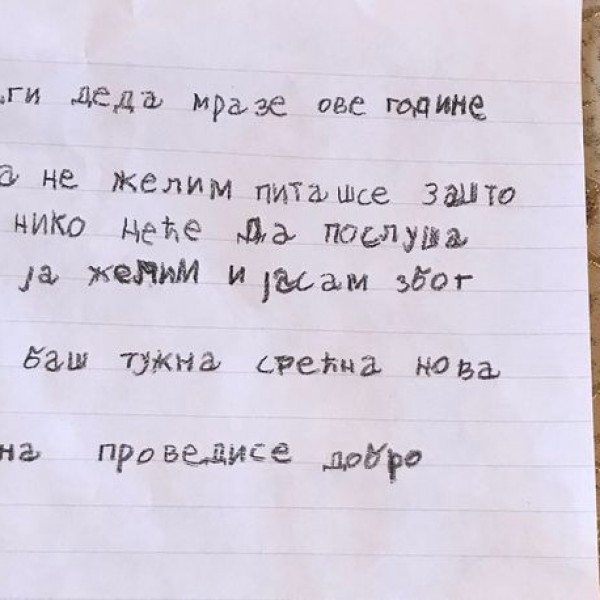 ги деда мразе ове године
а не желим питашсе зашто
нико неће да послуша
ја желим и јасам због
баш тужна срећна нова
на проведисе добро